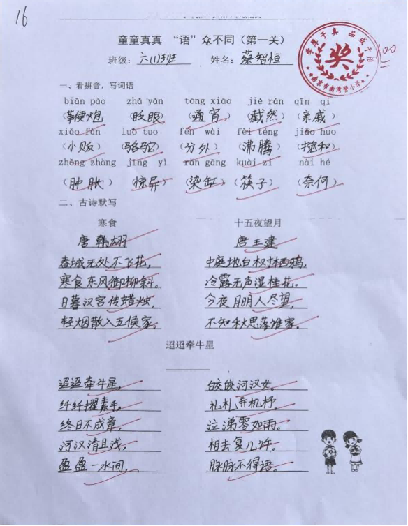 16
童童真真 "语"众不同(第一关)
班级: 六(1)班 姓名:
100
奖
一、看拼音,写词语
biān pào zhǎ yǎn tōng xiāo jié rán qīn qi
(鞭炮) (眨眼) (通宵) (截然) (亲戚)
xiǎo fàn luò tuo fèn wài fèi téng jiǎo huo
(小贩) (骆驼) (分外) (沸腾) (搅和)
zhǒng zhàng jīng yì rǎn gāng kuài zi nài hé
(肿胀) (惊异) (染缸) (筷子) (奈何)
二、古诗默写
寒食 十五夜望月
唐 韩翃 唐 王建
春城无处不飞花, 中庭地白树栖鸦,
寒食东风御柳斜。 冷露无声湿桂花。
日暮汉宫传蜡烛, 今夜月明人尽望,
轻烟散入五侯家。 不知秋思落谁家。
迢迢牵牛星
迢迢牵牛星, 皎皎河汉女。
纤纤擢素手, 札札弄机杼。
终日不成章, 泣涕零如雨。
河汉清且浅, 相去复几许。
盈盈一水间, 脉脉不得语。